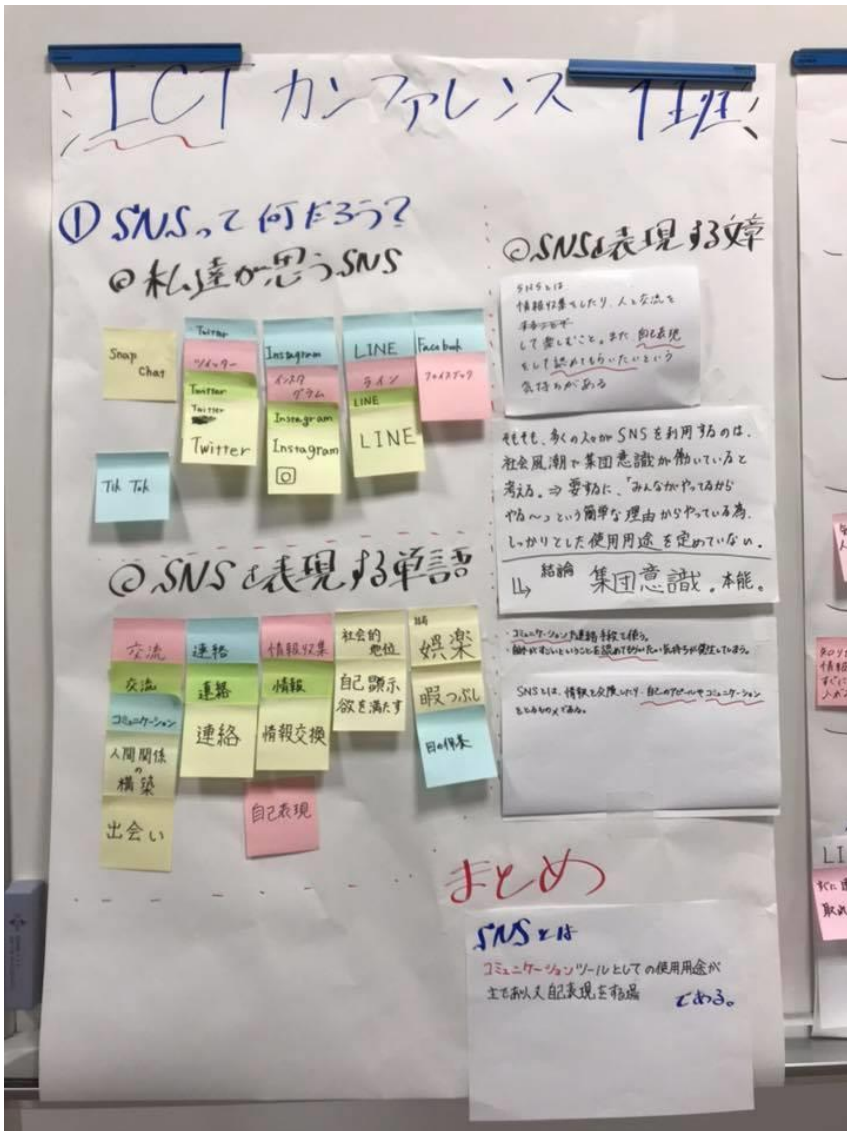 ICT カンファレンス 1班
① SNSって何だろう?
◎私達が思うSNS
Snap
Chat
Tik Tok
Twitter
ツイッター
Twitter
Twitter
Twitter
Instagram
インスタ
グラム
Instagram
Instagram
LINE
ライン
LINE
LINE
Facebook
フェイスブック
◎SNSを表現する単語
交流
交流
コミュニケーション
人間関係
の
構築
出会い
連絡
連絡
連絡
情報収集
情報
情報交換
自己表現
社会的
地位
自己顕示
欲を満たす
娯楽
暇つぶし
◎SNSを表現する文章
SNSとは
情報収集をしたり、人と交流を
して楽しむこと。また自己表現
をして認めてもらいたいという
気持ちがある
そもそも、多くの人がSNSを利用するのは、
社会風潮で集団意識が働いていると
考える。⇒要するに、「みんながやってるから
やる〜」という簡単な理由からやっている為、
しっかりとした使用用途を定めていない。
結論 集団意識。本能。
・コミュニケーションや連絡手段で使う。
SNSとは、情報を交換したり、自己アピールやコミュニケーション
まとめ
SNSとは
コミュニケーションツールとしての使用用途が
主であり、又自己表現をする場 である。
LI